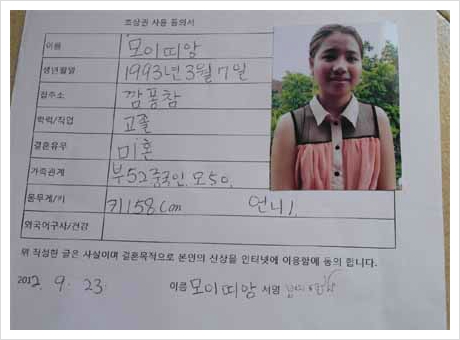 초상권 사용 동의서
이름 모이띠앙
생년월일 1993년 3월 7일
집주소 깜퐁참
학력/직업 고졸
결혼유무 미혼
가족관계 부52중국인. 모50.
몸무게/키 키158Cm 언니1.
외국어구사/건강
위 작성한 글은 사실이며 결혼목적으로 본인의 신상을 인터넷에 이용함에 동의 합니다.
2012. 9. 23. 이름 모이띠앙 서명